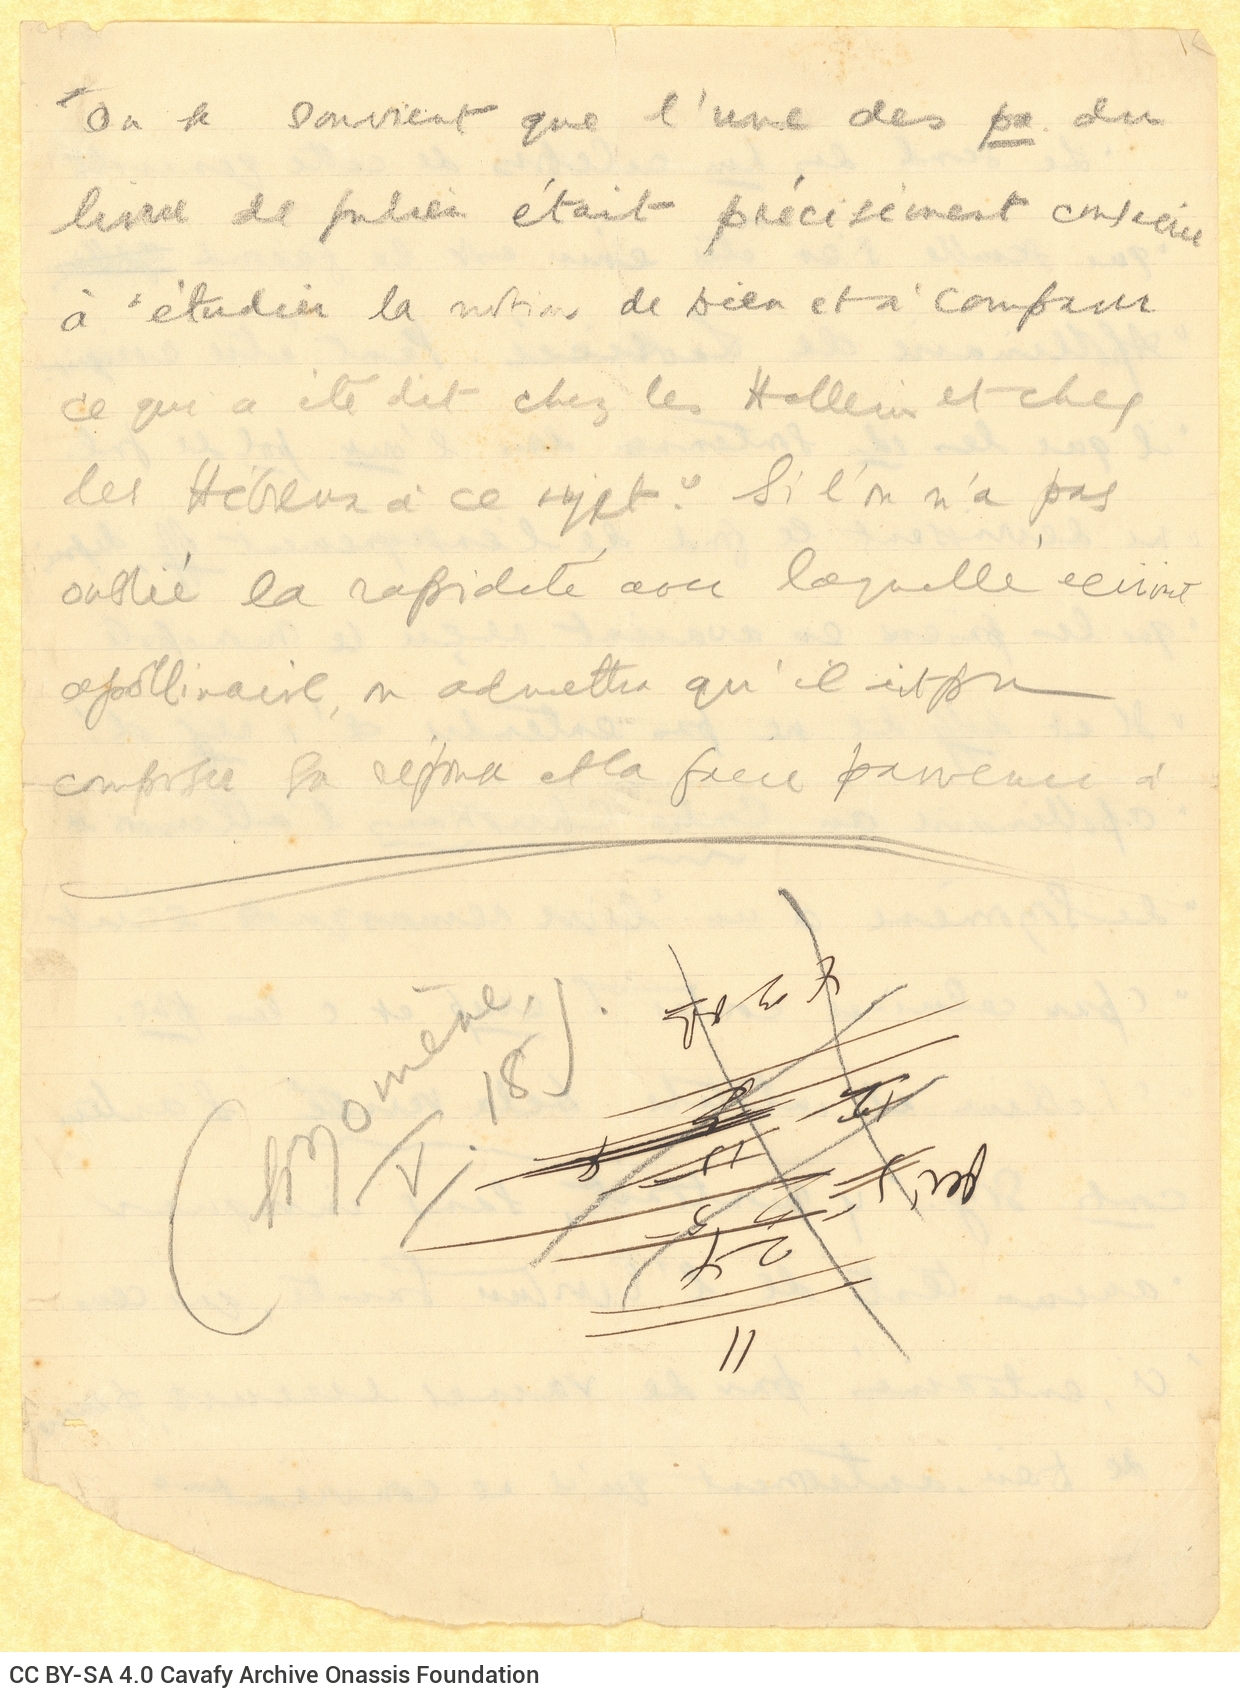 "On se souvient que l'une des pa. du
livre de Julien était précisément consacrée
à "étudier la notion de Dieu et à comparer
ce qui a été dit chez les Hellènes et chez
les Hébreux à ce sujet". Si l'on n'a pas
oublié la rapidité avec laquelle écrivait
apollinaire, on admettra qu'il ait pu
composer sa réponse et la faire parvenir à
(Sozomène,
V. 18).
11
CC BY-SA 4.0 Cavafy Archive Onassis Foundation